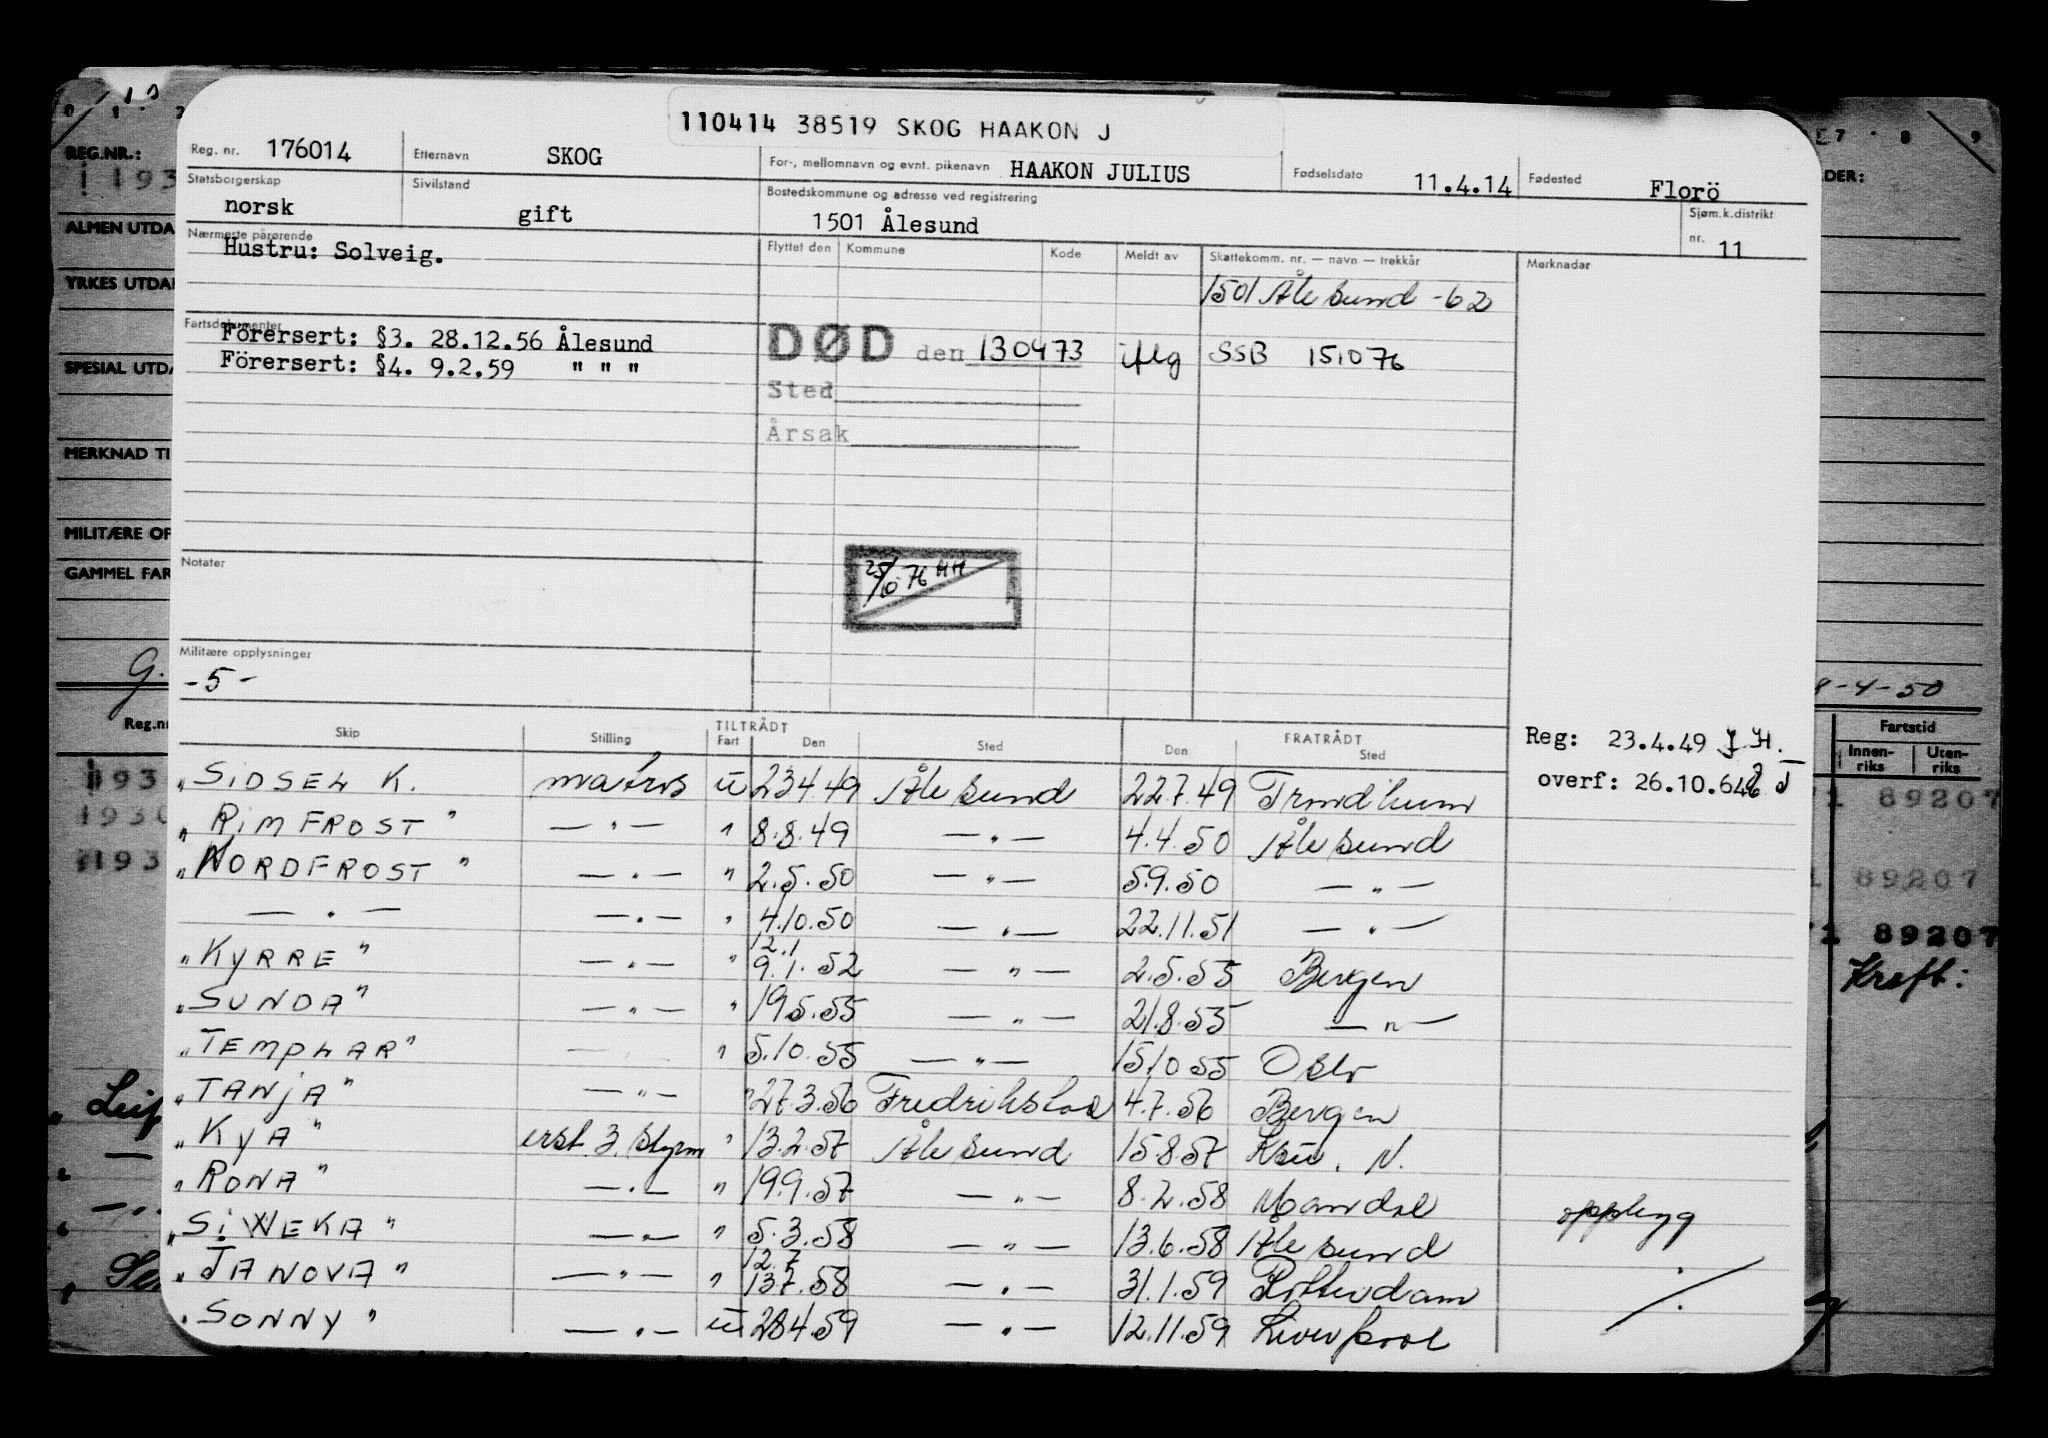 110414 38519 SKOG HAAKON J
Reg. nr. 176014 Etternavn SKOG For-, mellomnavn og evnt. pikenavn HAAKON JULIUS Fødselsdato 11.4.14 Fødested Florö
Statsborgerskap norsk Sivilstand gift Bostedskommune og adresse ved registrering 1501 Ålesund Sjøm.k.distrikt nr. 11
Nærmeste pårørende Hustru: Solveig.
Flyttet den Kommune Kode Meldt av Skattekomm. nr. — navn — trekkår Merknader
1501 Ålesund -62
Fartsdokumenter
Förersert: §3. 28.12.56 Ålesund
Förersert: §4. 9.2.59 " " "
DØD den 130473 iflg SSB 151076
Sted
Årsak
Notater
25/10 76 HH
Militære opplysninger
-5-
TILTRÅDT FRATRÅDT
Skip Stilling Fart Den Sted Den Sted
Reg: 23.4.49 J.H.
overf: 26.10.64
"SIDSEL K. matros u 23.4.49 Ålesund 22.7.49 Trondheim
"RIMFROST" —"— " 8.8.49 —"— 4.4.50 Ålesund
"NORDFROST" —"— " 2.5.50 —"— 5.9.50 —"—
—"— —"— " 4.10.50 —"— 22.11.51 —"—
12.1
"KYRRE" —"— " 9.1.52 —"— 2.5.55 Bergen
"SUNDA" —"— " 19.5.55 —"— 21.8.55 —"—
"TEMPLAR" —"— " 5.10.55 —"— 15.10.55 Oslo
"TANJA" —"— " 27.3.56 Fredrikstad 4.7.56 Bergen
"KYA" erst. 3 styrm " 13.2.57 Ålesund 15.8.57 Krsu. N.
"RONA" —"— " 19.9.57 —"— 8.2.58 Mandal opplegg
"SIWEKA" —"— " 5.3.58 —"— 13.6.58 Ålesund
12.7
"JANOVA" —"— " 13.7.58 —"— 31.1.59 Rotterdam
"SONNY" —"— u 28.4.59 —"— 12.11.59 Liverpool
REG.NR.:
ALMEN UTDA
YRKES UTDA
SPESIAL UTDA
MERKNAD TI
MILITÆRE OP
GAMMEL FAR
G.
Reg.nr
DER:
-4-50
Fartstid
Innen-riks Uten-riks
89207
89207
89207
Kreft: